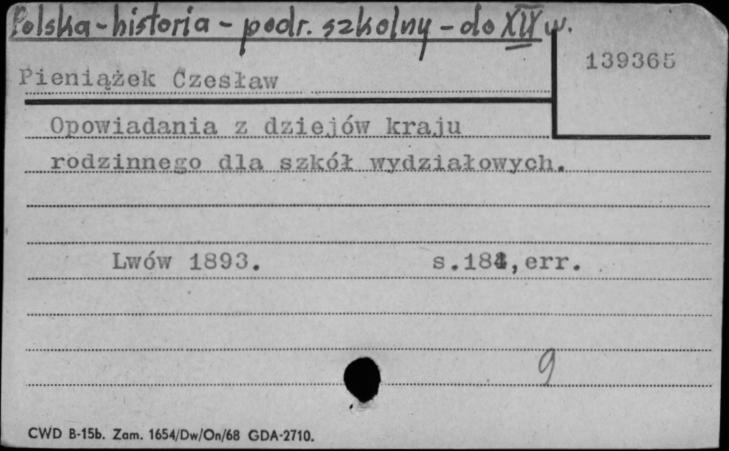 Polska-historia-podr. szkolny-do
139365
Pieniążek Czesław
Opowiadania z dziejów kraju
rodzinnego dla szkół wydziałowych.
Lwów 1893. s.184,err.
9
CWD B-15b. Zam. 1654/Dw/On/68 GDA-2710.